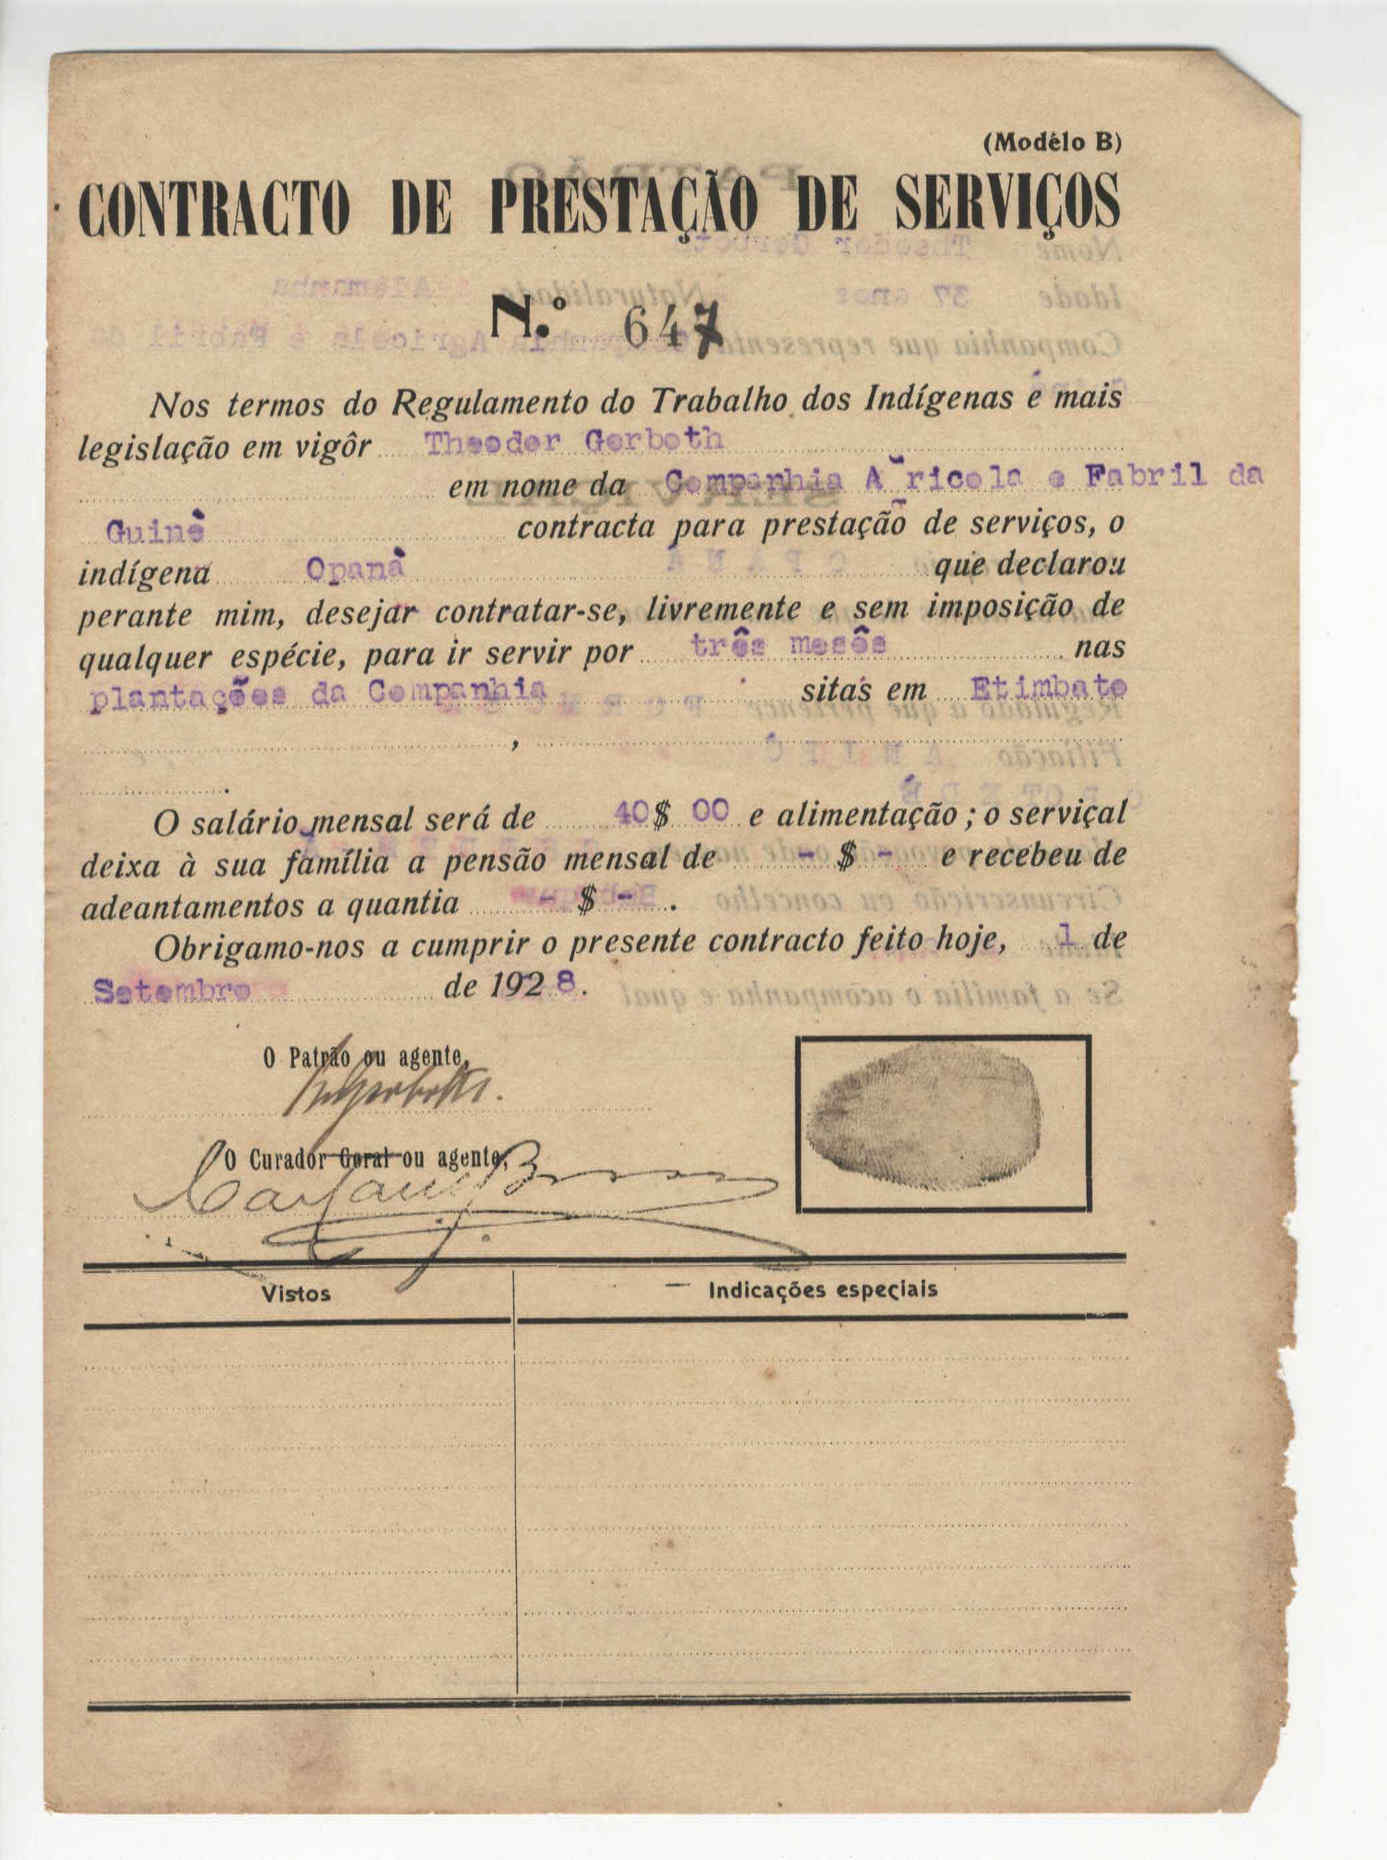 (Modêlo B)
CONTRACTO DE PRESTAÇÃO DE SERVIÇOS
N.º 647
Nos termos do Regulamento do Trabalho dos Indígenas e mais
legislação em vigôr Theodor Gerboth
em nome da Companhia A ricola e Fabril da
Guinè contracta para prestação de serviços, o
indígena Opanà que declarou
perante mim, desejar contratar-se, livremente e sem imposição de
qualquer espécie, para ir servir por três mesês nas
plantações da Companhia sitas em Etimbato
,
.
O salário mensal será de 40$ 00 e alimentação; o serviçal
deixa à sua família a pensão mensal de - $ - e recebeu de
adeantamentos a quantia - $ - .
Obrigamo-nos a cumprir o presente contracto feito hoje, 1 de
Setembro de 1928.
O Patrão ou agente,
O Curador Geral ou agente,
Vistos Indicações especiais